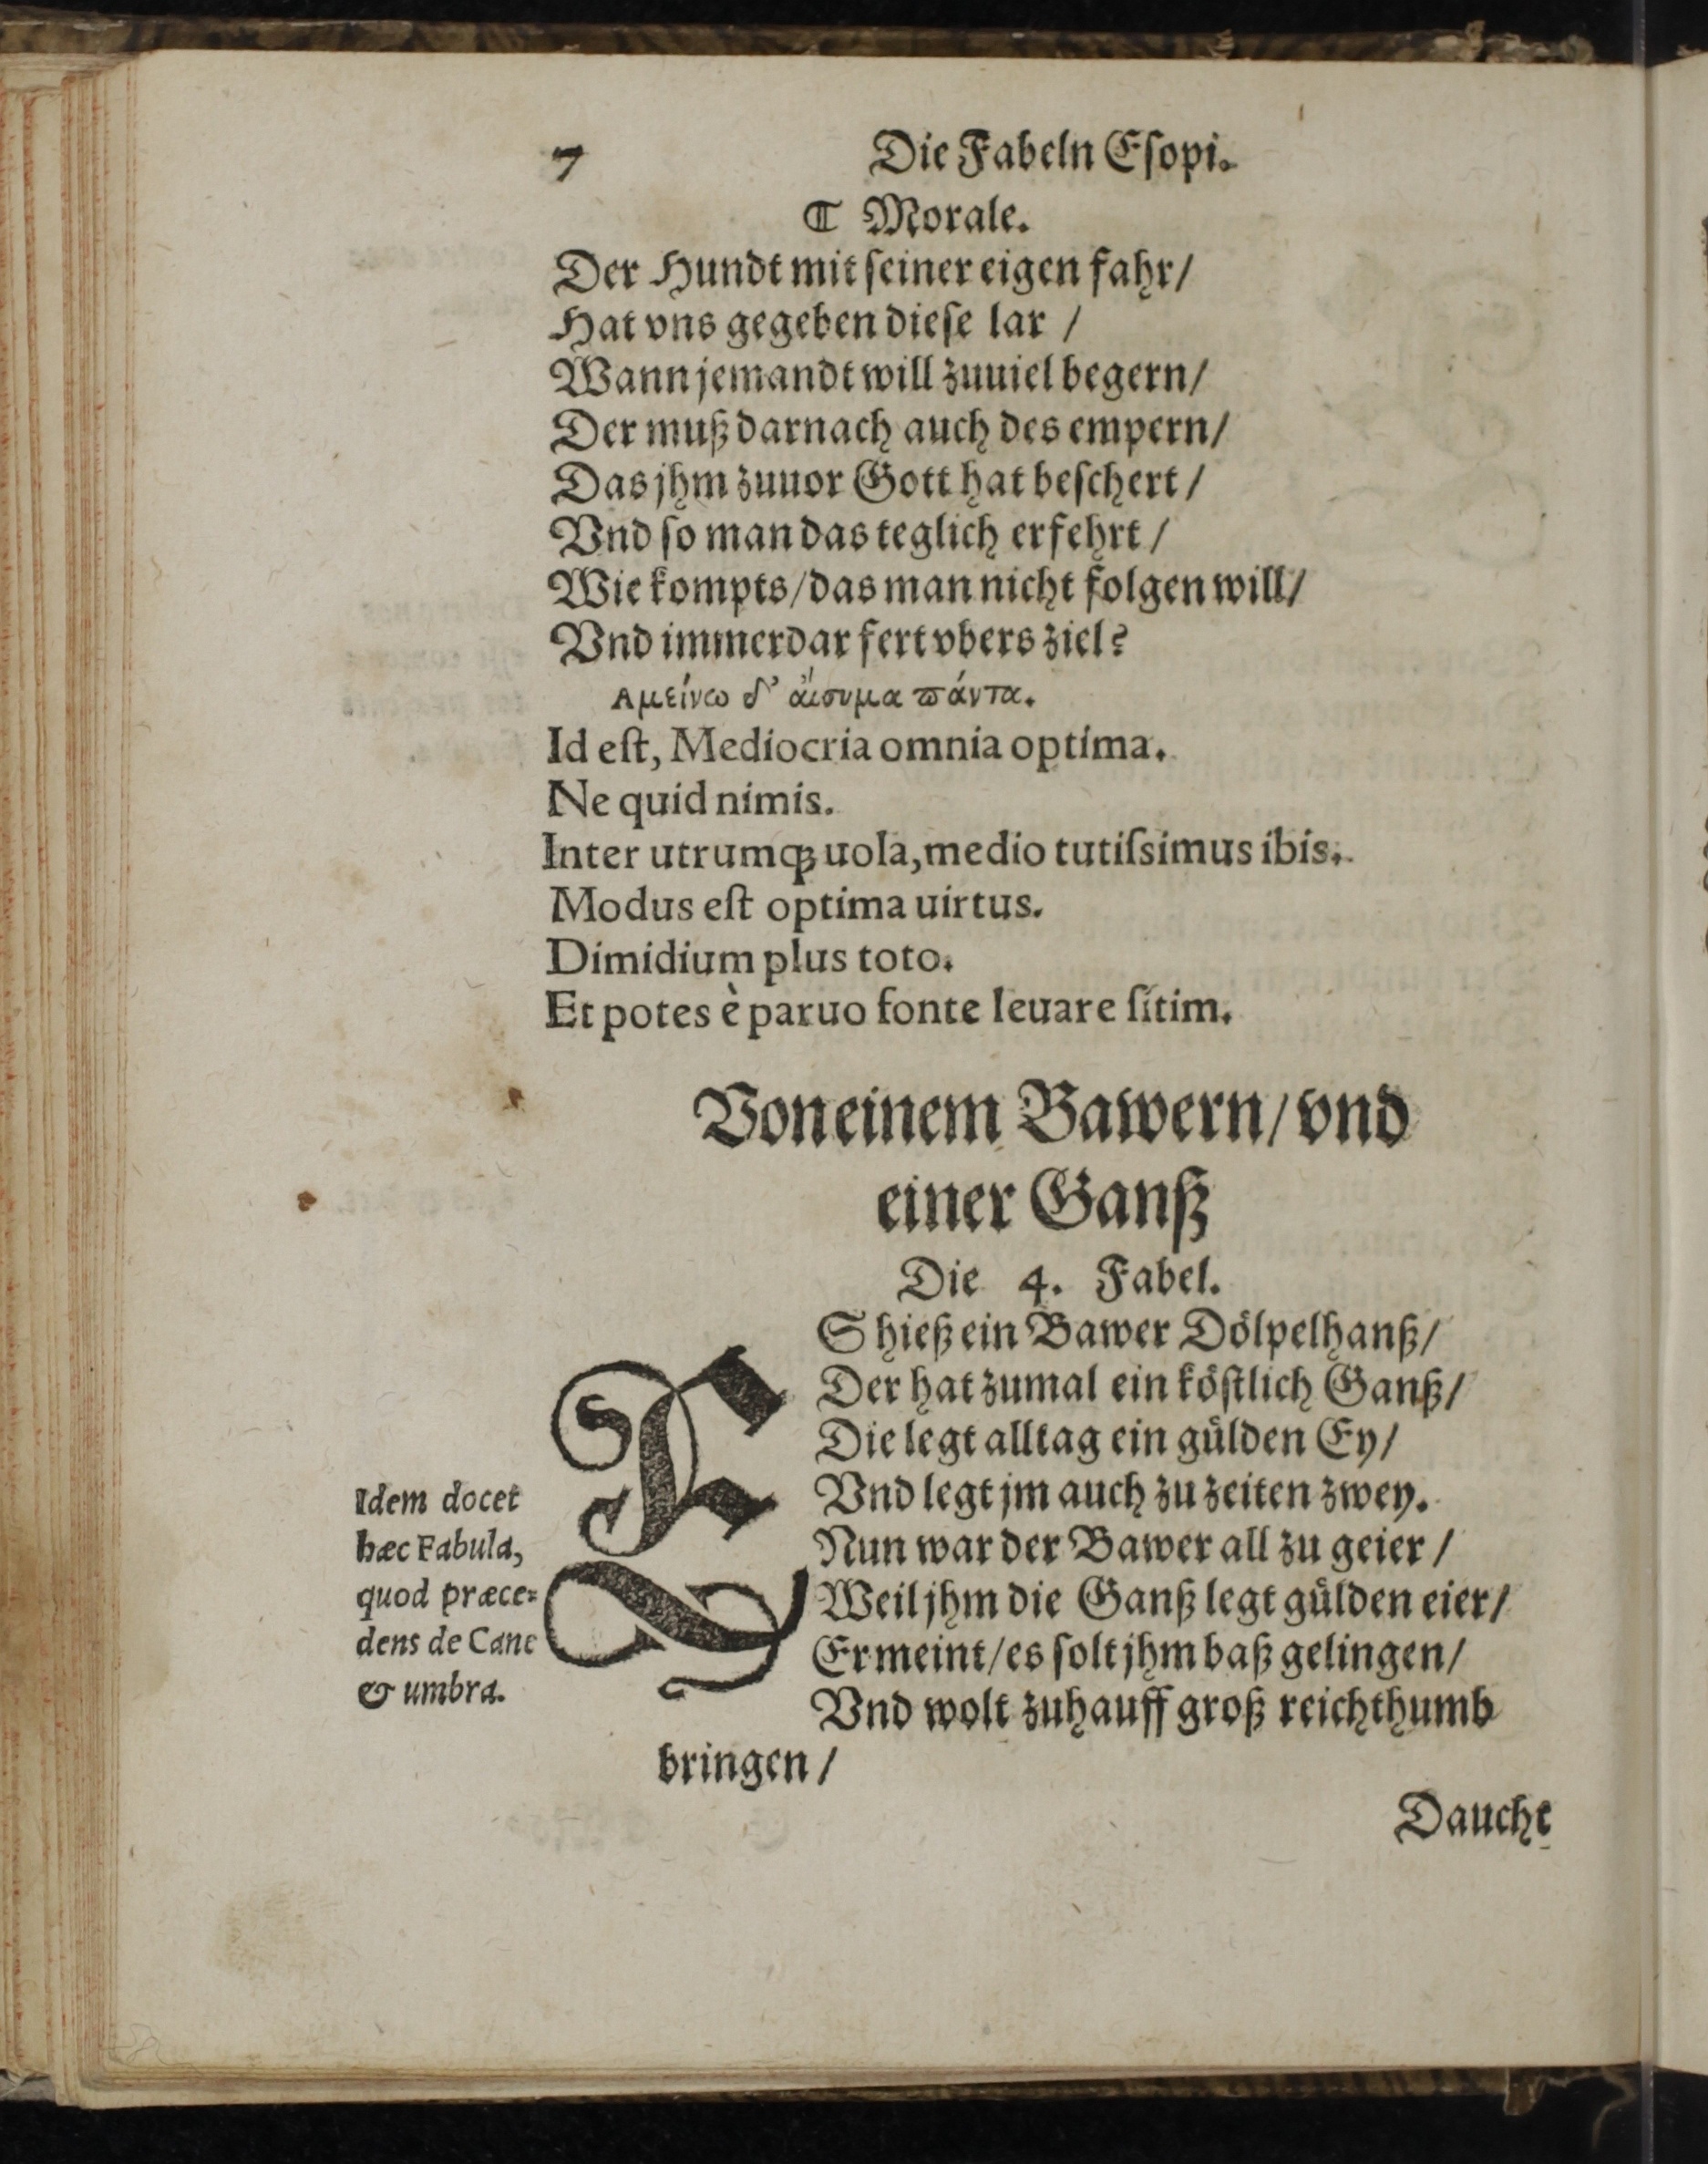 7 Die Fabeln Eſopi.
⸿ Morale.
Der Hundt mit ſeiner eigen fahr/
Hat vns gegeben dieſe lar /
Wann jemandt will zuuiel begern/
Der muß darnach auch des empern/
Das jhm zuuor Gott hat beſchert /
Vnd ſo man das teglich erfehrt /
Wie kompts/das man nicht folgen will/
Vnd immerdar fert vbers ziel?
Αμείνω δ' αἴσυμα πάντα.
Id eſt, Mediocria omnia optima.
Ne quid nimis.
Inter utrumqꝫ uola, medio tutiſsimus ibis.
Modus eſt optima uirtus.
Dimidium plus toto.
Et potes è paruo fonte leuare ſitim.
Von einem Bawern/ vnd
einer Ganß
Die 4. Fabel.
ES hieß ein Bawer Dölpelhanß/
Der hat zumal ein köſtlich Ganß/
Die legt alltag ein gülden Ey/
Vnd legt jm auch zu zeiten zwey.
Nun war der Bawer all zu geier /
Weil jhm die Ganß legt gülden eier/
Er meint/es ſolt jhm baß gelingen/
Vnd wolt zuhauff groß reichthumb
bringen /
Idem docet
hæc Fabula,
quod præce⸗
dens de Cane
& umbra.
Daucht